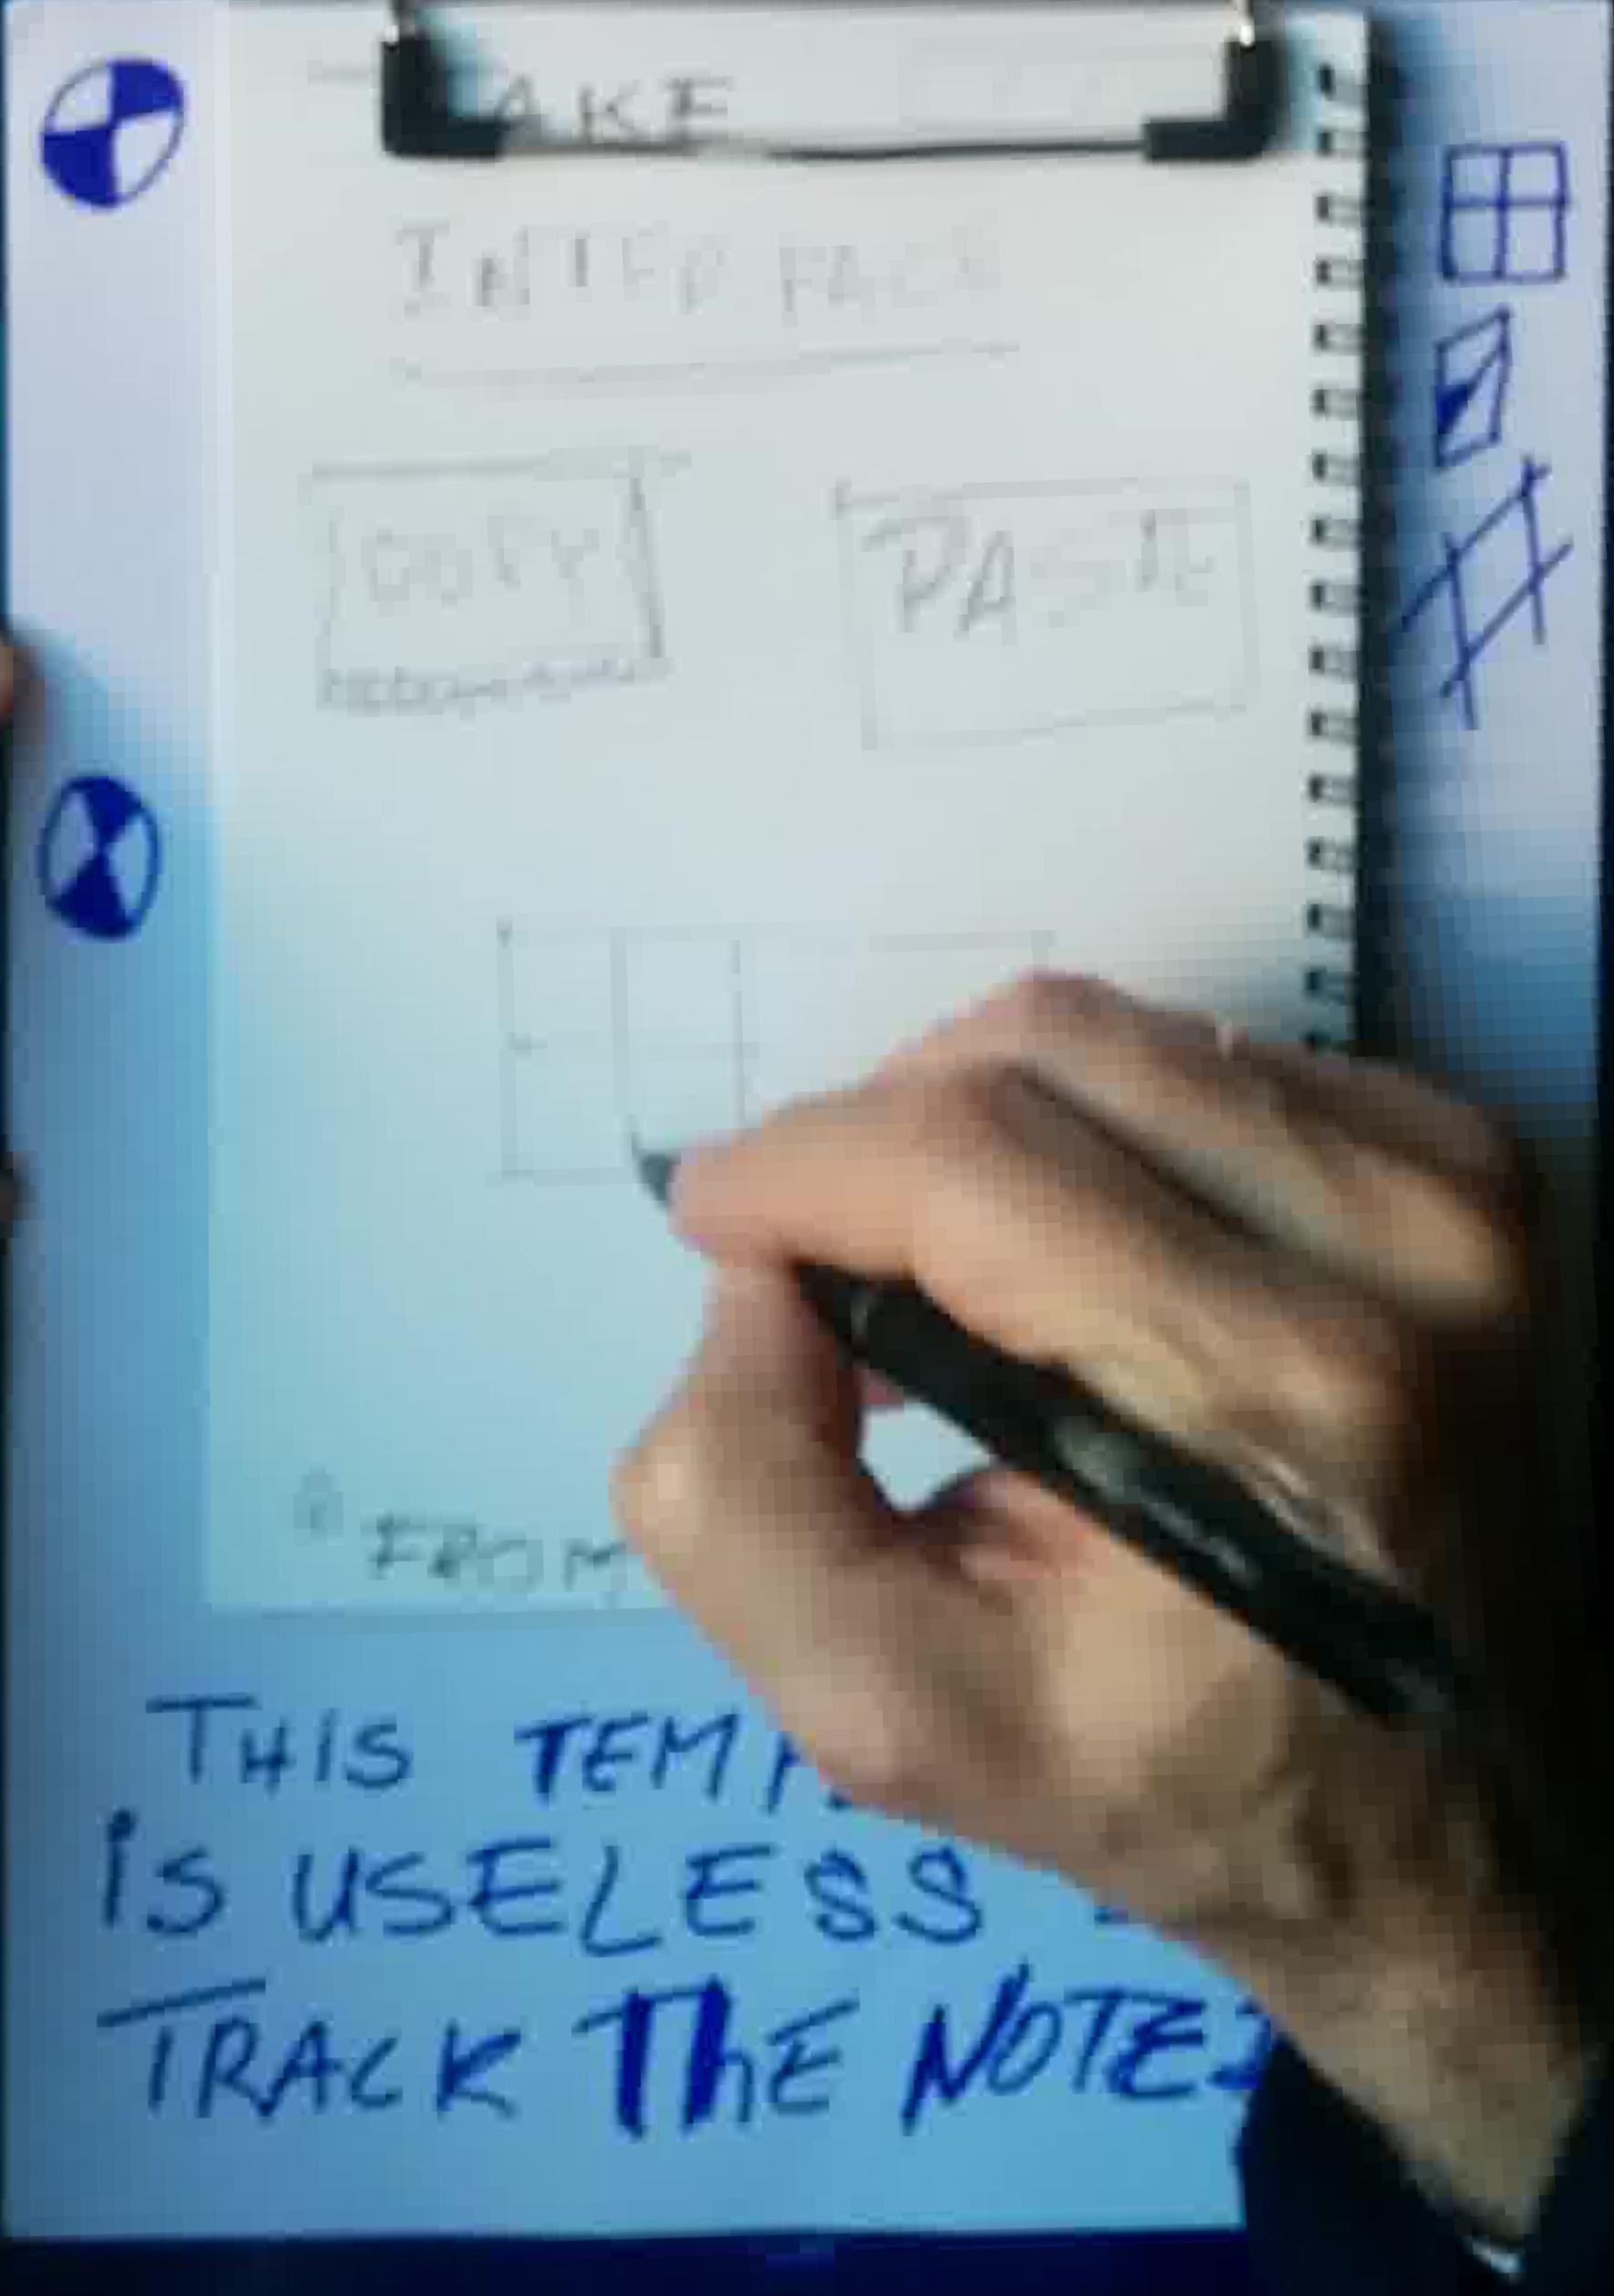 AKE
INTERFACE
COPY PASTE
FROM
THIS TEMP
is USELESS
TRACK ThE NOTES